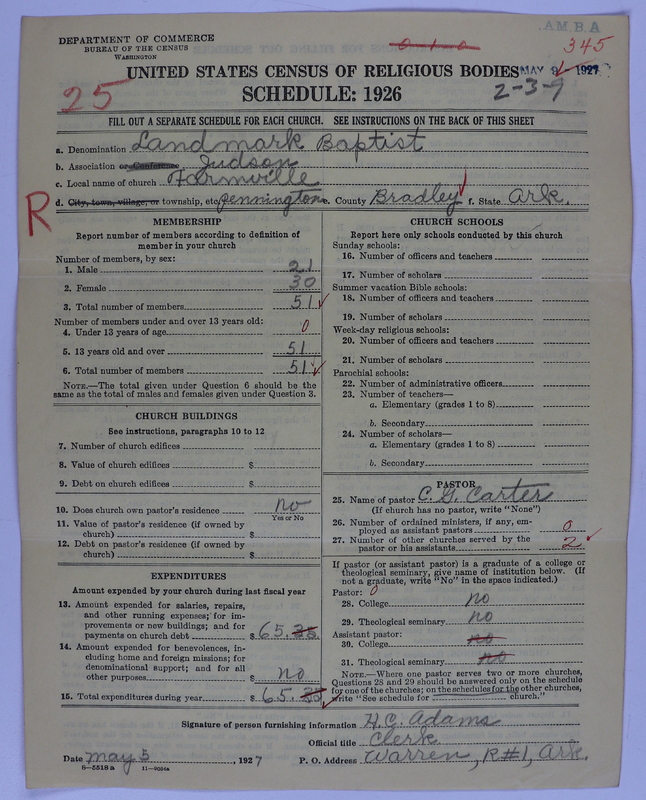 A.M.B.A
DEPARTMENT OF COMMERCE
BUREAU OF THE CENSUS
WASHINGTON
0 1 0
345
MAY 1927
UNITED STATES CENSUS OF RELIGIOUS BODIES
25
SCHEDULE: 1926
2-3-9
FILL OUT A SEPARATE SCHEDULE FOR EACH CHURCH. SEE INSTRUCTIONS ON THE BACK OF THIS SHEET
a. Denomination Landmark Baptist
b. Association or Conference Judson
c. Local name of church Farmville
R
d. City, town, village, or township, etc. Pennington e. County Bradley f. State Ark.
MEMBERSHIP
Report number of members according to definition of
member in your church
Number of members, by sex:
1. Male 21
2. Female 30
3. Total number of members 51
Number of members under and over 13 years old:
4. Under 13 years of age 0
5. 13 years old and over 51
6. Total number of members 51
NOTE.—The total given under Question 6 should be
same as the total of males and females given under Question 3.
CHURCH BUILDINGS
See instructions, paragraphs 10 to 12
7. Number of church edifices
8. Value of church edifices $
9. Debt on church edifices $
10. Does church own pastor's residence no
Yes or No
11. Value of pastor's residence (if owned by
church) $
12. Debt on pastor's residence (if owned by
church) $
EXPENDITURES
Amount expended by your church during last fiscal year
13. Amount expended for salaries, repairs,
and other running expenses; for im-
provements or new buildings; and for
payments on church debt $ 65.35
14. Amount expended for benevolences, in-
cluding home and foreign missions; for
denominational support; and for all
other purposes $ no
15. Total expenditures during year $ 65.35
CHURCH SCHOOLS
Report here only schools conducted by this church
Sunday schools:
16. Number of officers and teachers
17. Number of scholars
Summer vacation Bible schools:
18. Number of officers and teachers
19. Number of scholars
Week-day religious schools:
20. Number of officers and teachers
21. Number of scholars
Parochial schools:
22. Number of administrative officers
23. Number of teachers—
a. Elementary (grades 1 to 8)
b. Secondary
24. Number of scholars—
a. Elementary (grades 1 to 8)
b. Secondary
PASTOR
25. Name of pastor C. G. Carter
(If church has no pastor, write "None")
26. Number of ordained ministers, if any, em-
ployed as assistant pastors 0
27. Number of other churches served by the
pastor or his assistants 2
If pastor (or assistant pastor) is a graduate of a college or
theological seminary, give name of institution below. (If
not a graduate, write "No" in the space indicated.)
Pastor: 0
28. College no
29. Theological seminary no
Assistant pastor:
30. College no
31. Theological seminary no
NOTE.—Where one pastor serves two or more churches,
Questions 28 and 29 should be answered only on the schedule
for one of the churches; on the schedules for the other churches,
write "See schedule for church."
Signature of person furnishing information H.C. Adams
Official title Clerk
Date may 5, 1927 P. O. Address Warren, R#1, Ark.
8-5518a 11-9054a